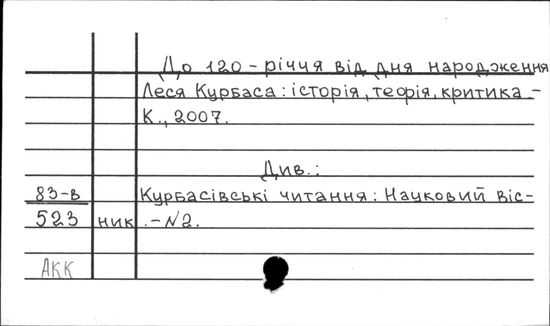 До 120-річчя від дня народження
Леся Курбаса: історія, теорія, критика.-
К., 2007.
Див.:
83-в Курбасівські читання: Науковий віс-
523 ник.-N2.
АКК